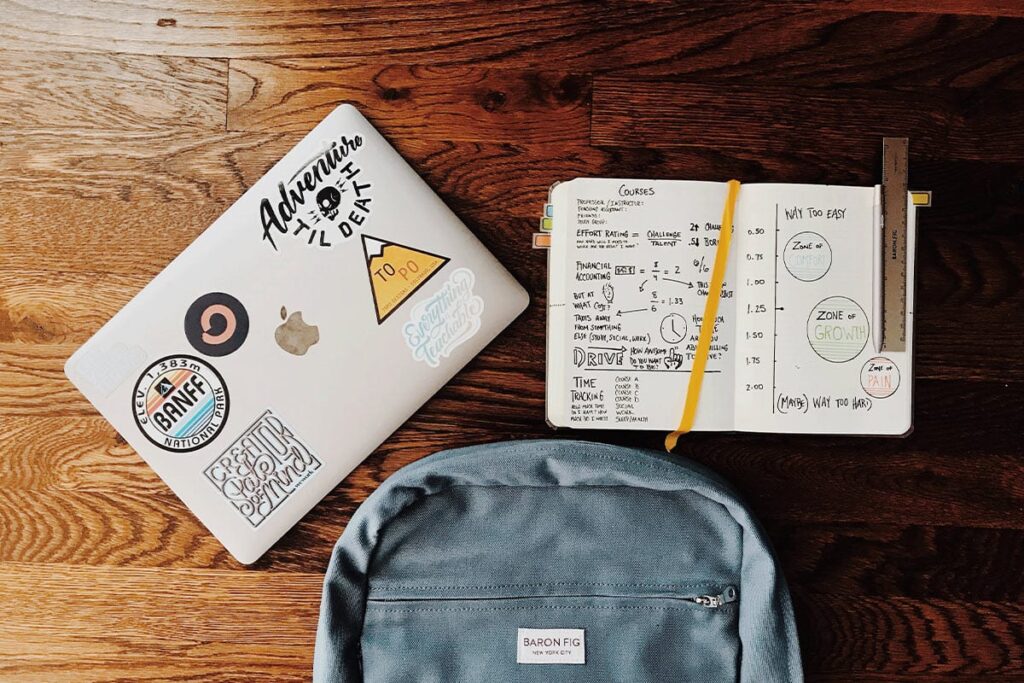 Adventure
TIL DEATH
TO PO
Everything
Teachable
ELEV. 1,383m
BANFF
NATIONAL PARK
CREATOR
State
of Mind
COURSES
PROFESSOR / INSTRUCTOR:
TEACHING ASSISTANT:
FRIENDS:
STUDY GROUP:
EFFORT RATING = CHALLENGE
TALENT
FINANCIAL
ACCOUNTING
= 8
4
= 2
BUT AT
WHAT COST?
8
6
= 1.33
TAKES AWAY
FROM SOMETHING
ELSE (STUDY, SOCIAL, WORK)
HOW MUCH
TIME
ARE YOU
WILLING
TO GIVE?
DRIVE
HOW AWESOME
DO YOU WANT
TO BE?
TIME
TRACKING
COURSE A
COURSE B
COURSE C
COURSE D
SOCIAL
WORK
SLEEP/HEALTH
WAY TOO EASY
0.50
0.75
1.00
1.25
1.50
1.75
2.00
ZONE OF
COMFORT
ZONE OF
GROWTH
ZONE OF
PAIN
(MAYBE) WAY TOO HARD
BARON FIG
BARON FIG
NEW YORK CITY